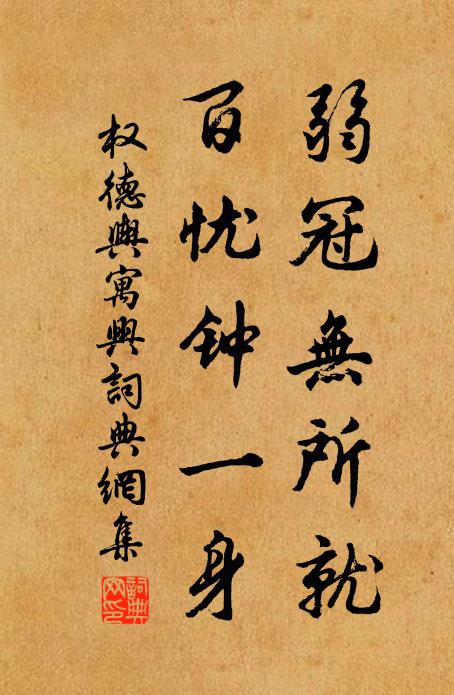 弱冠無所就
百忧钟一身
权德輿寓興詞典網集
詞典
网印